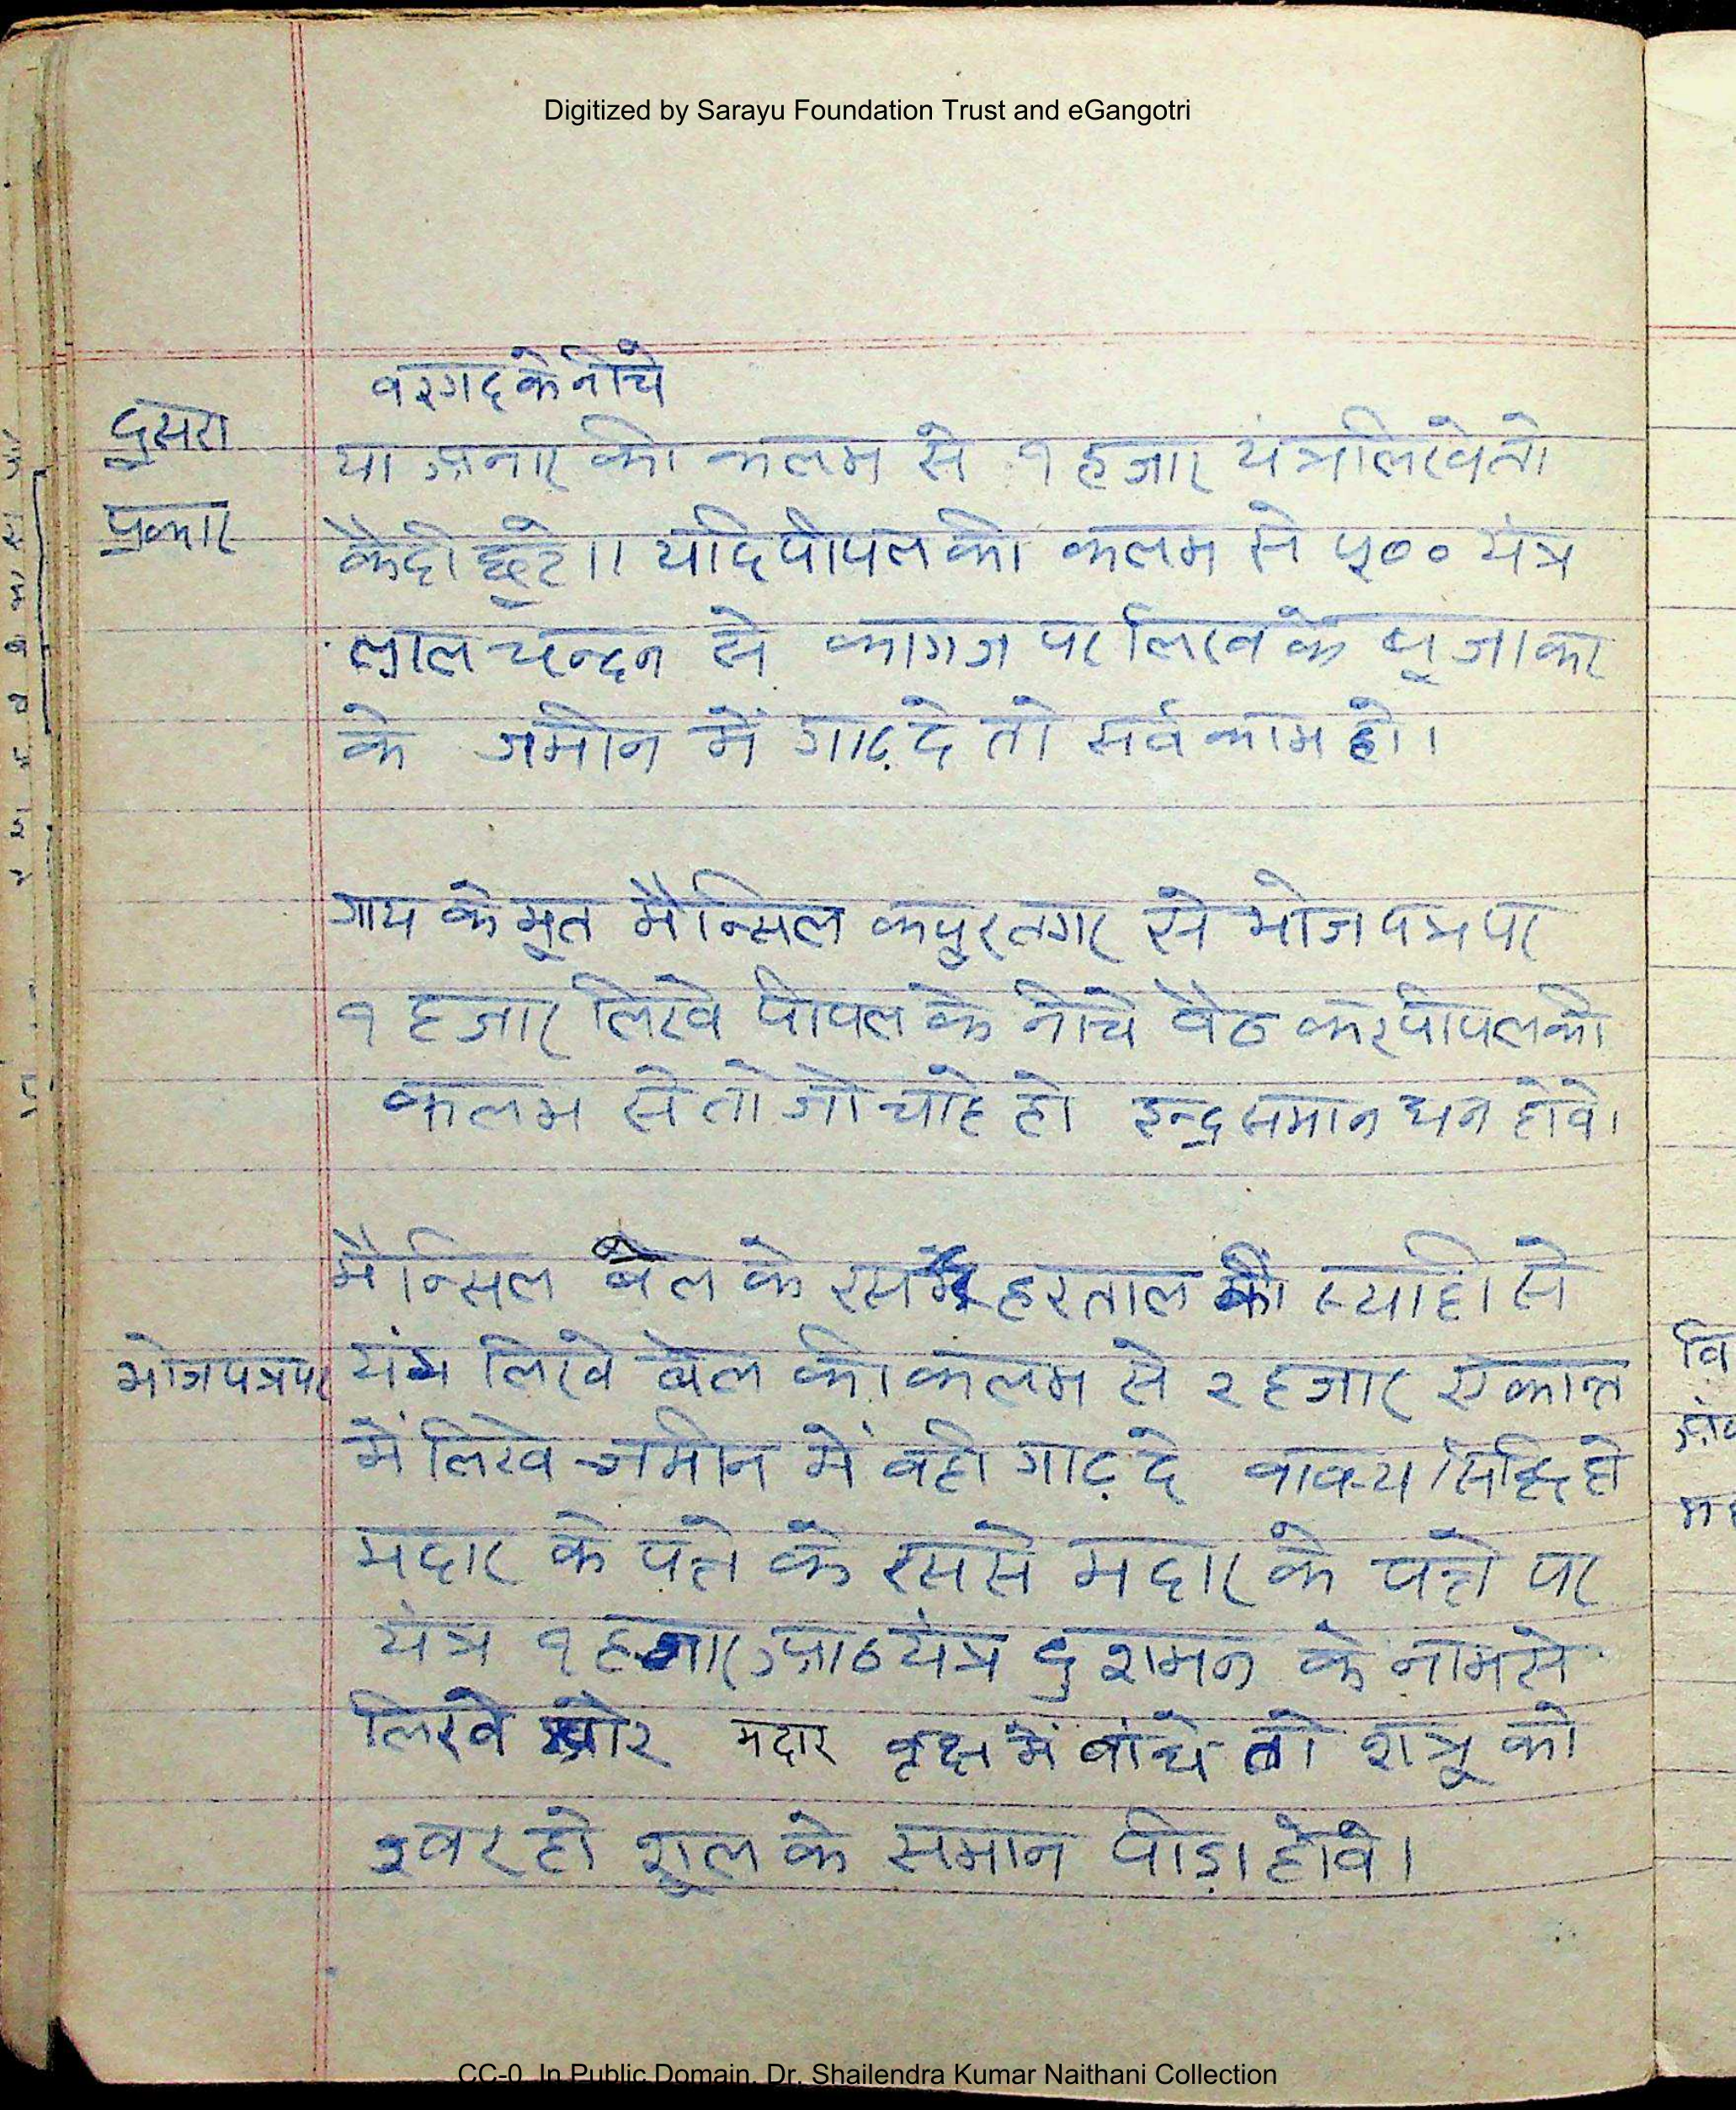 Digitized by Sarayu Foundation Trust and eGangotri
वरगद के नीचे
दुसरा
प्रकार
या अनार की कलम से १ हजार यंत्र लिखे तो
कैदी छूटे।। यदि पीपल की कलम से ५०० यंत्र
लाल चन्दन से कागज पर लिख के पूजा कर
के जमीन में गाढ़ दे तो सर्व काम हो।
गाय के मूत मैन्सिल कपुर तगर से भोजपत्र पर
१ हजार लिखे पीपल के नीचे वैठ कर पीपल की
कलम से तो जो चाहे हो इन्द्र समान धन होवे।
मैन्सिल बेल के रस हरताल की स्याही से
भोजपत्र पर
यंत्र लिखे बेल की कलम से २ हजार एकान्त
में लिखे जमीन में वही गाढ़ दे वाक्य सिद्धि हो
मदार के पत्ते के रस से मदार के पत्ते पर
यंत्र १ हजार आठ यंत्र दुशमन के नाम से
लिखे और मदार वृक्ष में बांधे तो शत्रू को
ज्वर हो शूल के समान पीड़ा होवे।
CC-0. In Public Domain. Dr. Shailendra Kumar Naithani Collection